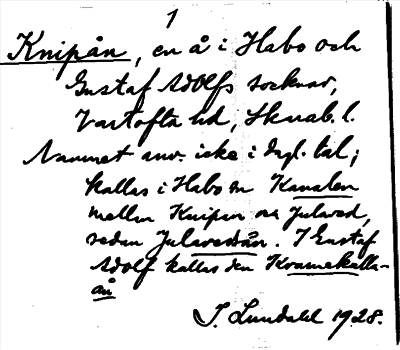 1
Knipån, en å i Habo och
Gustaf Adolfs socknar,
Vartofta hd, Skarab. l.
Namnet anv. icke i dagl. tal;
kallas i Habo sn Kanalen
mellan Knipen och Julared,
sedan Jularedsån. I Gustaf
Adolf kallas den Kvarnekulla-
ån
J. Lundahl 1928.